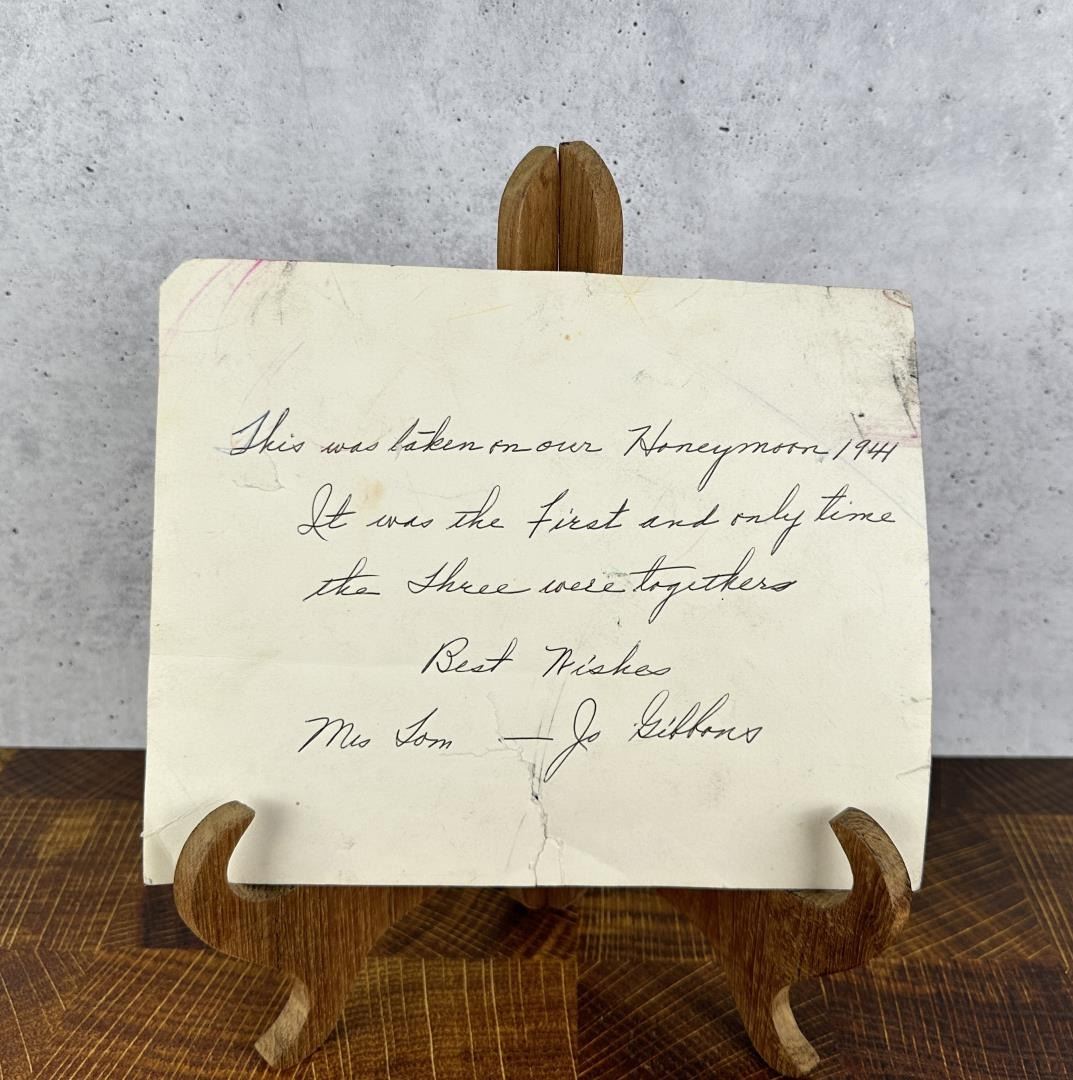 This was taken on our Honeymoon 1941
It was the First and only time
the Three were togethers
Best Wishes
Mrs Tom — Jo Gibbons